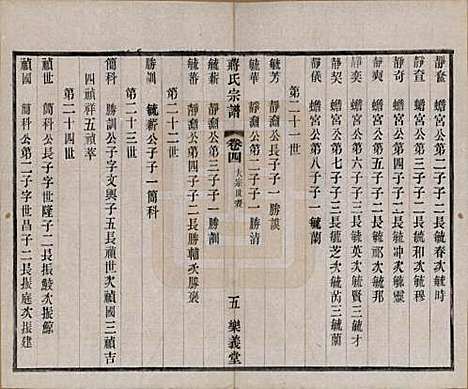 靜奎 蟾宮公第二子子二長毓春次毓時
靜査 蟾宮公第三子子二長毓和次毓穆
靜奇 蟾宮公第四子子二長毓仲次毓靈
靜爽 蟾宮公第五子子二長毓祁次毓邦
靜奕 蟾宮公第六子子三長毓英次毓賢三毓才
靜契 蟾宮公第七子子三長毓芝次毓芮三毓蘭
靜儀 蟾宮公第八子子一毓蘭
第二十一世
毓芳 靜淵公長子子一勝謨
毓華 靜淵公第二子子一勝清
蔣氏宗譜 卷四 大宗世表 五 樂義堂
毓薪 靜淵公第三子子一勝訓
毓蕃 靜淵公第四子子二長勝輔次勝襃
第二十二世
勝訓 毓薪公子子一簡科
第二十三世
簡科 勝訓公子字文輿子五長禎世次禎國三禎吉
四禎祥五禎萃
第二十四世
禎世 簡科公長子字世隆子二長振鮫次振鯨
禎國 簡科公第二子字世昌子二長振庭次振建